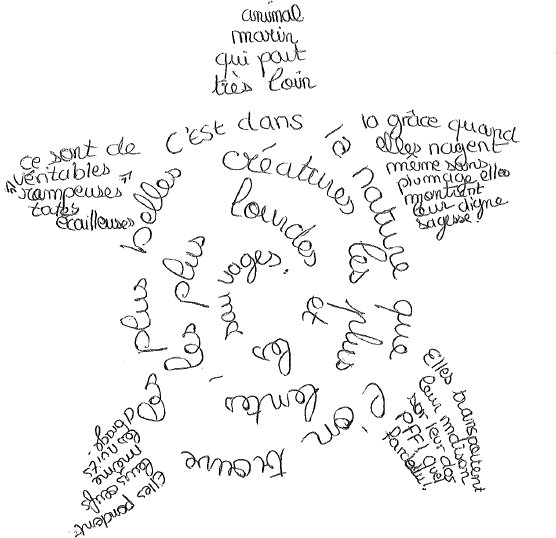 animal
marin
qui part
très loin
ce sont de
véritables
"rampeuses"
écailleuses
la grâce quand
elles nagent
même sans
plumage elles
montrent
leur digne
sagesse!
C'est dans
la nature
que
l'on
trouve
les plus
belles
créatures
les plus
lentes,
les plus
lourdes
et
les
sauvages.
Elles transportent
leur maison
sur leur dos
pff! quel
fardeau!
Elles pondent
leurs œufs
même
les nuits
d'orage